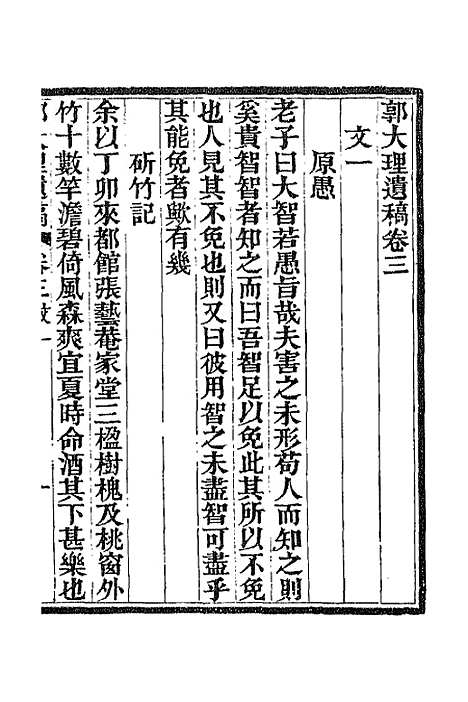 郭大理遺稿卷三
文一
原愚
老子曰大智若愚旨哉夫害之未形苟人而知之則
奚貴智智者知之而曰吾智足以免此其所以不免
也人見其不免也則又曰彼用智之未盡智可盡乎
其能免者歟有幾
斫竹記
余以丁卯來都館張藝菴家堂三楹樹槐及桃窗外
竹十數竿澹碧倚風森爽宜夏時命酒其下甚樂也
郭大理遺稿 卷三 一